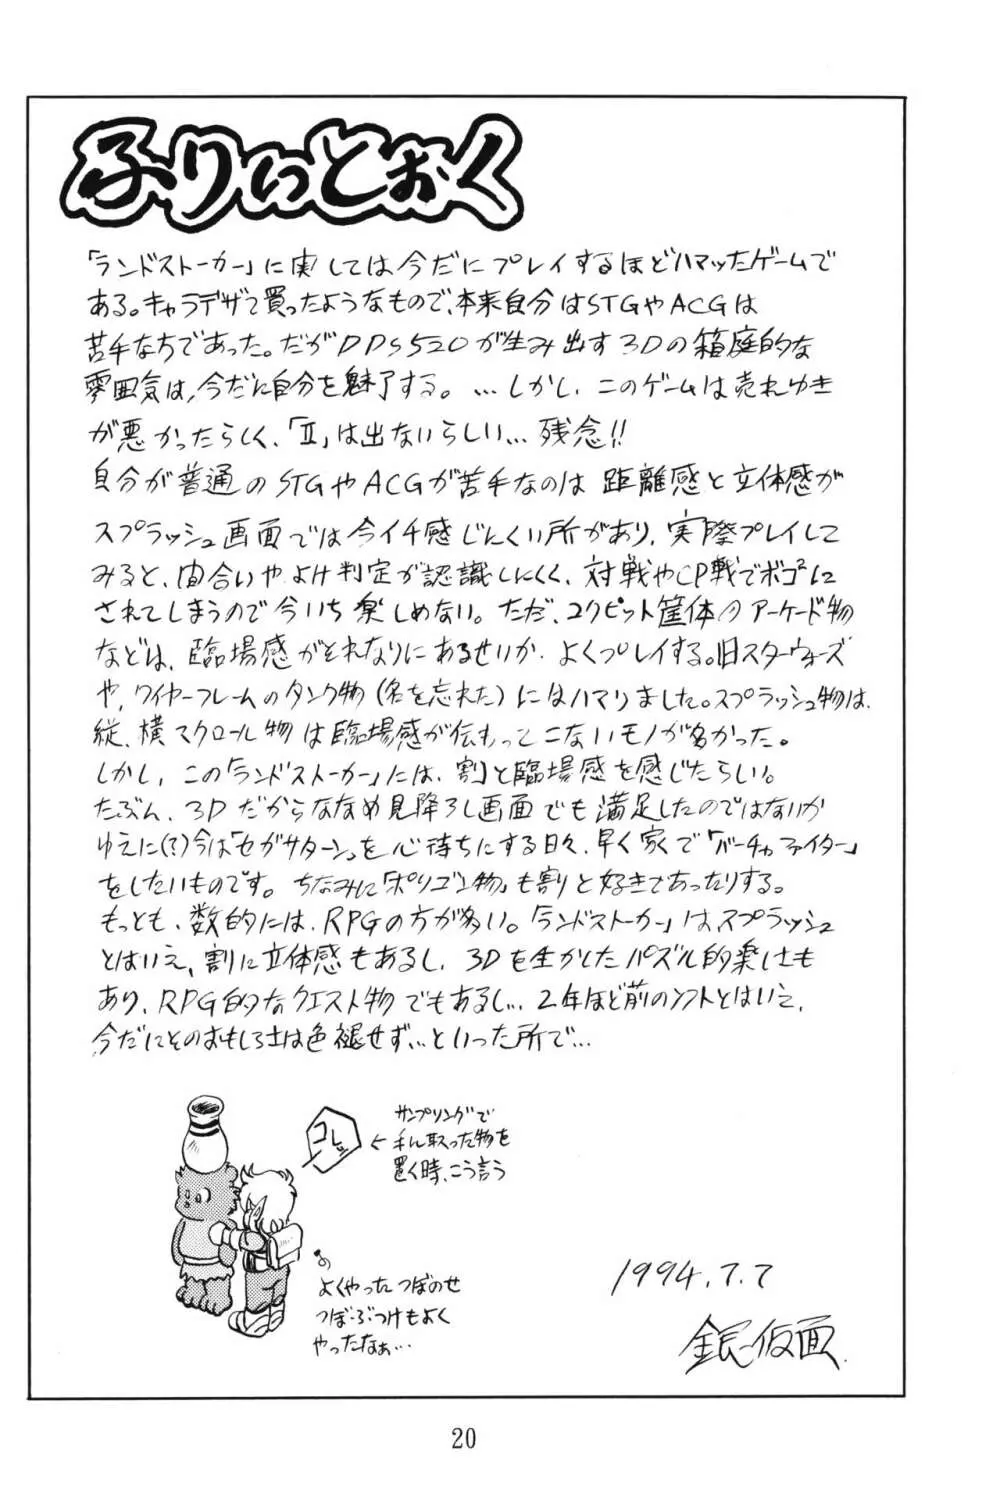 ふりいとおく
「ランドストーカー」に実しては今だにプレイするほどハマッたゲームで
ある。キャラデザで買ったようなもので、本来自分はSTGやACGは
苦手な方であった。だがDDS520が生み出す3Dの箱庭的な
雰囲気は、今だに自分を魅了する。…しかし、このゲームは売れゆき
が悪かったらしく、「Ⅱ」は出ないらしい…残念!!
自分が普通のSTGやACGが苦手なのは 距離感と立体感が
スプラッシュ画面では今イチ感じにくい所があり、実際プレイして
みると、間合いやよけ判定が認識しにくく、対戦やCP戦でボゴに
されてしまうので今いち楽しめない。ただ、コクピット筐体のアーケード物
などは、臨場感がそれなりにあるせいか、よくプレイする。旧スターウォーズ
や、ワイヤーフレームのタンク物(名を忘れた)にはハマりました。スプラッシュ物は、
縦、横スクロール物は臨場感が伝わってこないモノが多かった。
しかし、この「ランドストーカー」には、割と臨場感を感じたらしい。
たぶん、3Dだからななめ見降ろし画面でも満足したのではないか
ゆえに(?)今は「セガサターン」を心待ちにする日々、早く家で「バーチャファイター」
をしたいものです。ちなみに「ポリゴン物」も割と好きであったりする。
もっとも、数的には、RPGの方が多い。「ランドストーカー」は、スプラッシュ
とはいえ、割に立体感もあるし、3Dを生かしたパズル的楽しさも
あり、RPG的なクエスト物でもあるし…2年ほど前のソフトとはいえ、
今だにそのおもしろさは色褪せず…といった所で…
コレッ
サンプリングで
←手に取った物を
置く時、こう言う
よくやったつぼのせ
つぼぶつけもよく
やったなぁ…
1994.7.7
銀仮面
20